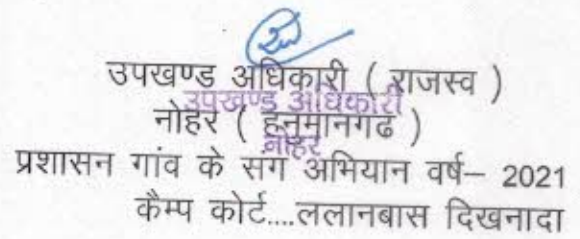 उपखण्ड अधिकारी ( राजस्व )
उपखण्ड अधिकारी
नोहर ( हनुमानगढ )
नोहर
प्रशासन गांव के सग अभियान वर्ष– 2021
कैम्प कोर्ट....ललानबास दिखनादा